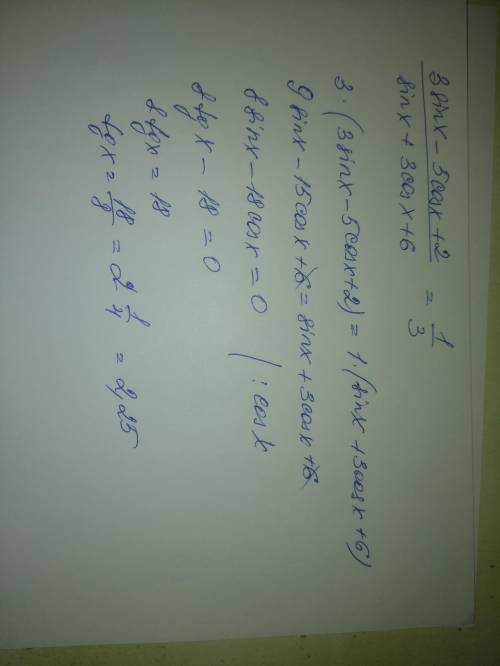 3 sinx - 5 cosx + 2 / sinx + 3 cosx + 6 = 1/3
3 · (3 sinx - 5 cosx + 2) = 1 · (sinx + 3 cosx + 6)
9 sinx - 15 cosx + 6 = sinx + 3 cosx + 6
8 sinx - 18 cosx = 0 | : cosx
8 tgx - 18 = 0
8 tgx = 18
tgx = 18/8 = 2 1/4 = 2,25